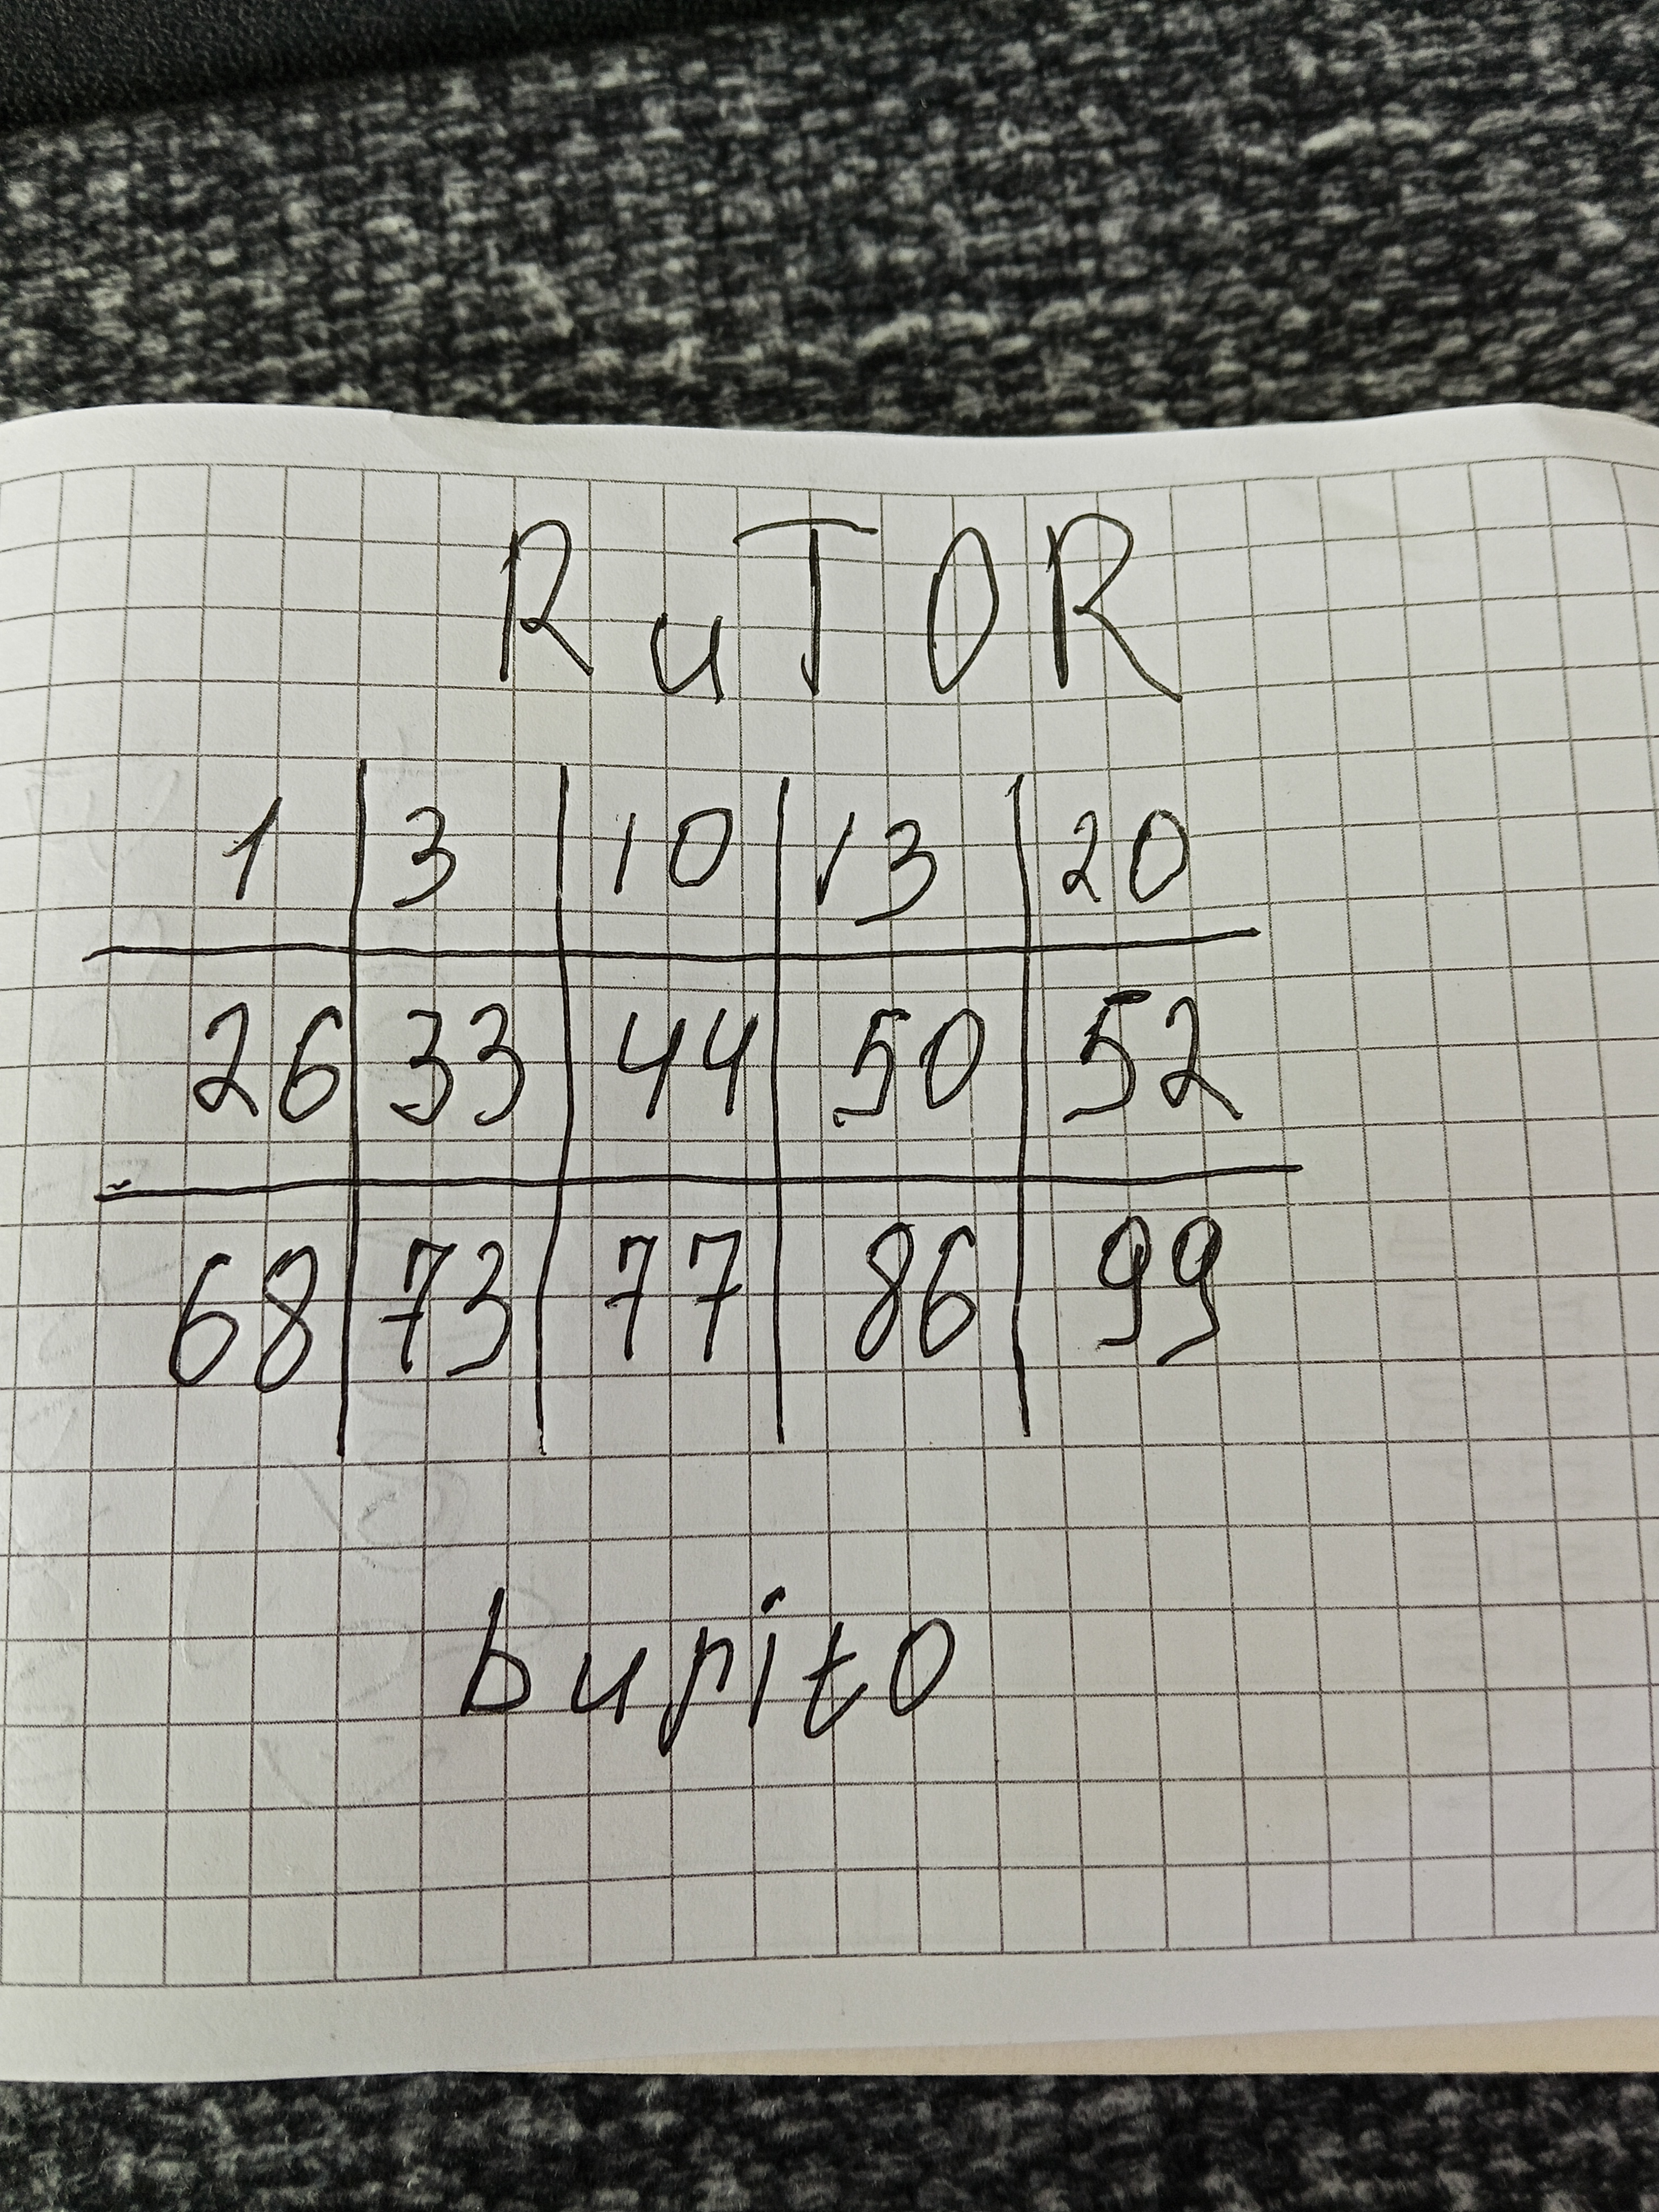 RuTOR
1 3 10 13 20
26 33 44 50 52
68 73 77 86 99
burito